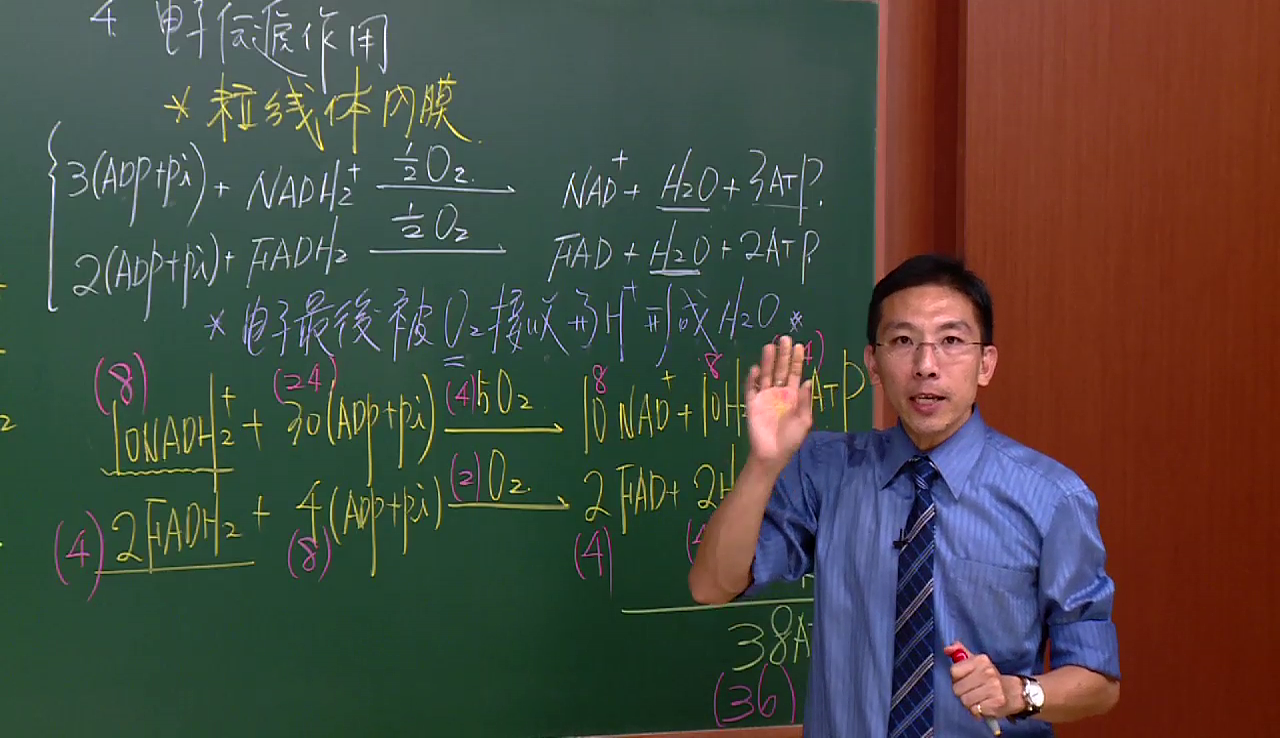 4. 电子伝遞作用
* 粒线体內膜
3(ADP+Pi) + NADH₂⁺ ½O₂ NAD⁺ + H₂O + 3ATP.
2(ADP+Pi) + FADH₂ ½O₂ FAD + H₂O + 2ATP
* 电子最後被O₂接收与H⁺形成H₂O *
(8) (24) (4) 8 8
10NADH₂⁺ + 30(ADP+Pi) 5O₂ 10NAD⁺ + 10H₂ ATP
(2)
2FADH₂ + 4(ADP+Pi) O₂ 2FAD + 2H
(4) (8) (4)
38A
(36)